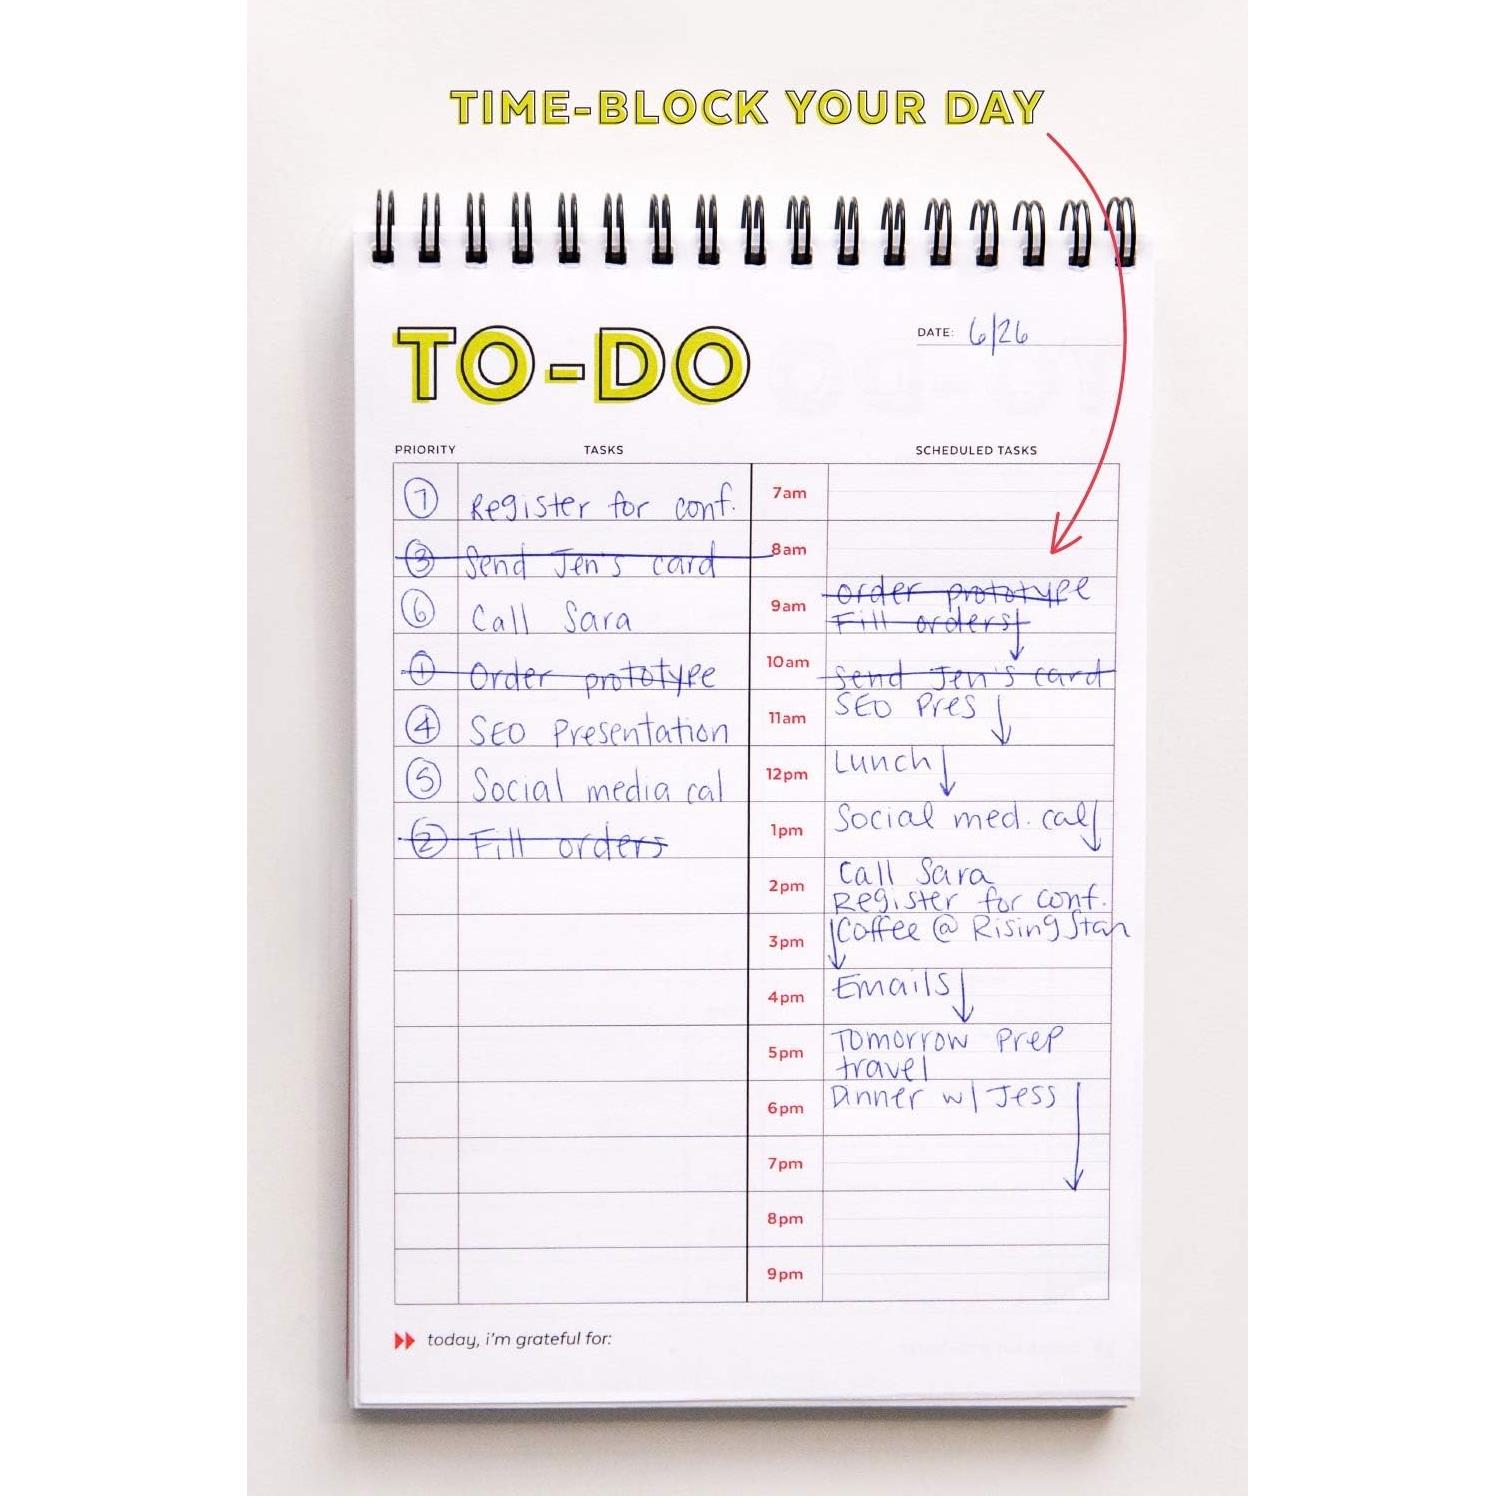 TIME-BLOCK YOUR DAY
TO-DO
DATE: 6/26
PRIORITY TASKS SCHEDULED TASKS
7 Register for conf. 7am
3 Send Jen's card 8am
6 Call Sara 9am order prototype
Fill orders
1 Order prototype 10am Send Jen's card
4 SEO Presentation 11am SEO Pres
5 Social media cal 12pm Lunch
2 Fill orders 1pm Social med. cal
2pm Call Sara
Register for conf.
3pm Coffee @ Rising Star
4pm Emails
5pm Tomorrow Prep
travel
6pm Dinner w/ Jess
7pm
8pm
9pm
today, i'm grateful for: